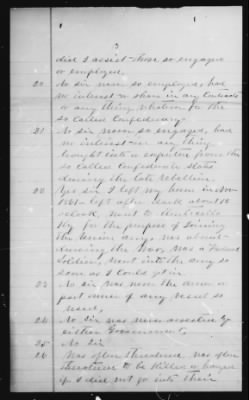 3
did I assist those so engaged
or employed,
20 No sir never so employed, had
no interest or share in any Contracts
or any thing whatever for the
so called Confederacy.
21 No sir never so engaged, had
no interest in any thing
bought into or exported from the
so called Confederate States
during the late rebellion.
22 Yes sir I left my home in
1861 left after dark about 10
oclock, went to Monticello
Ky for the purpose of joining
the Union army, was absent
during the War, was a Federal
Soldier, went into the army so
soon as I could get in
23 No sir was never the owner or
part owner of any vessel so
used,
24 No sir was never arrested by
either Government,
25 No sir
26 Was often threatened, was often
threatened to be killed or hanged
if I did not go into their